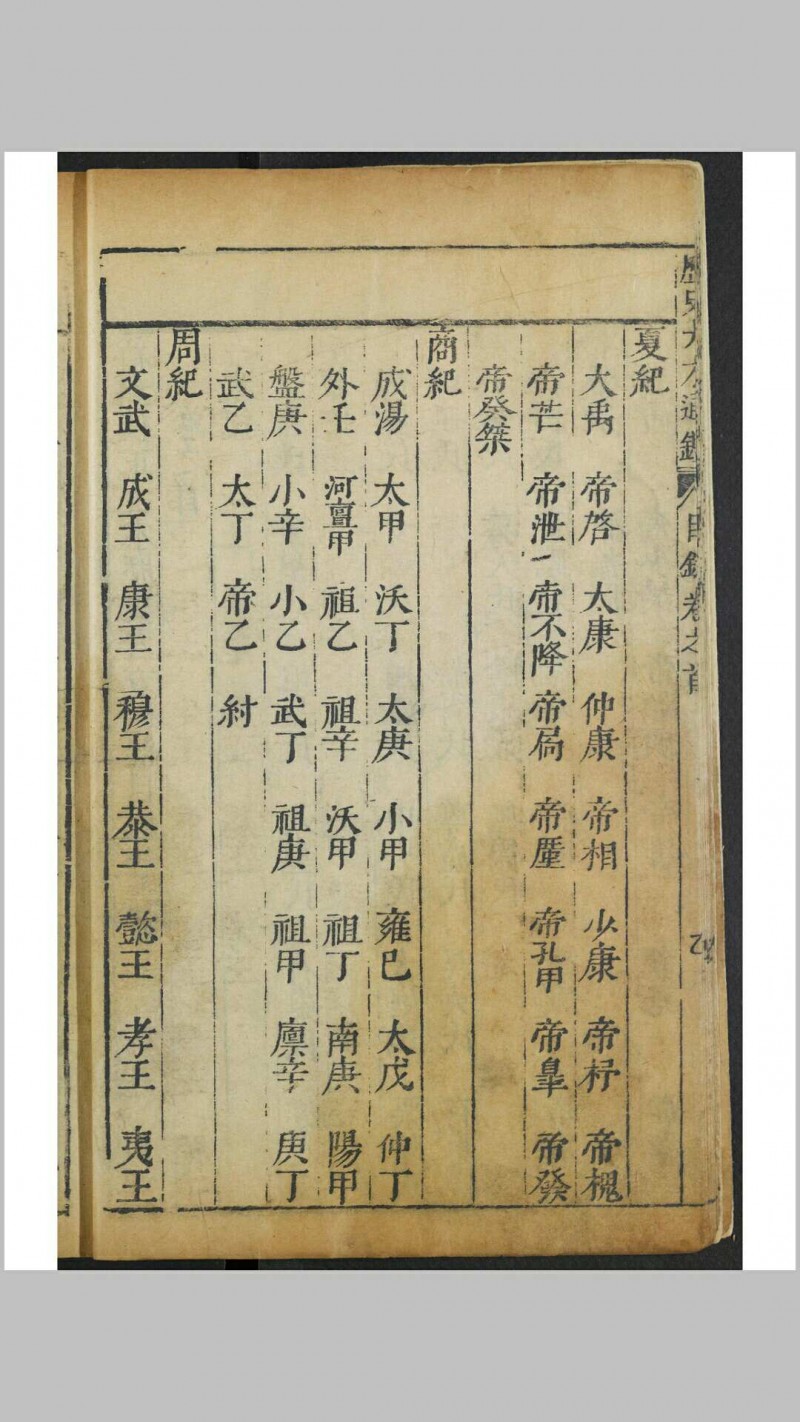 歷史大方通鑑 目錄卷之首
夏紀
大禹 帝啓 太康 仲康 帝相 少康 帝杼 帝槐
帝芒 帝泄 帝不降 帝扃 帝廑 帝孔甲 帝臯 帝發
帝癸桀
商紀
成湯 太甲 沃丁 太庚 小甲 雍巳 太戊 仲丁
外壬 河亶甲 祖乙 祖辛 沃甲 祖丁 南庚 陽甲
盤庚 小辛 小乙 武丁 祖庚 祖甲 廪辛 庚丁
武乙 太丁 帝乙 紂
周紀
文武 成王 康王 穆王 恭王 懿王 孝王 夷王